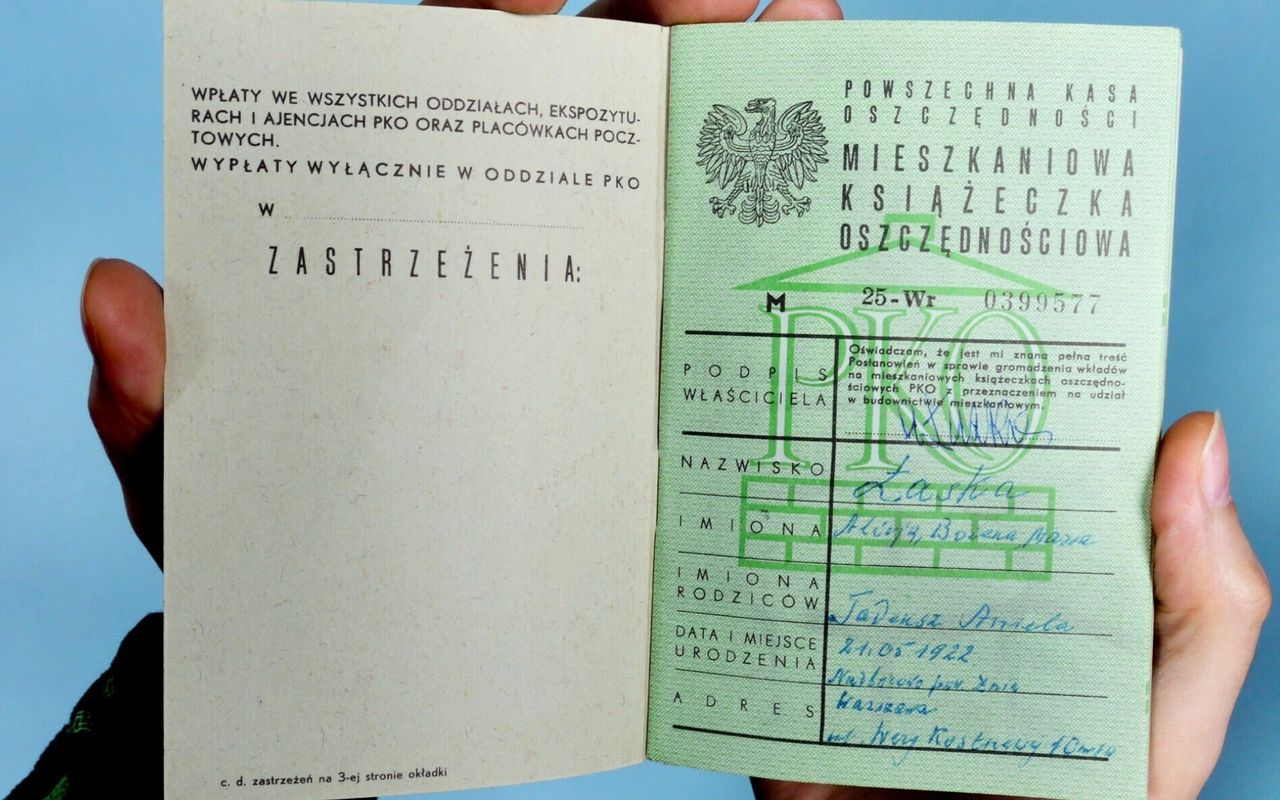 WPŁATY WE WSZYSTKICH ODDZIAŁACH, EKSPOZYTU-
RACH I AJENCJACH PKO ORAZ PLACÓWKACH POCZ-
TOWYCH.
WYPŁATY WYŁĄCZNIE W ODDZIALE PKO
W
ZASTRZEŻENIA:
c. d. zastrzeżeń na 3-ej stronie okładki
POWSZECHNA KASA
OSZCZĘDNOŚCI
MIESZKANIOWA
KSIĄŻECZKA
OSZCZĘDNOŚCIOWA
M 25-Wr 0399577
PKO
PODPIS
WŁAŚCICIELA
Oświadczam, że jest mi znana pełna treść
Postanowień w sprawie gromadzenia wkładów
na mieszkaniowych książeczkach oszczędno-
ściowych PKO z przeznaczeniem na udział
w budownictwie mieszkaniowym.
NAZWISKO Łaska
IMIONA Alicja, Bożena, Maria
IMIONA
RODZICÓW Tadeusz Aniela
DATA I MIEJSCE
URODZENIA
21.05 1922
pow. Żnin
ADRES Warszawa
ul. Wery Kostrzewy